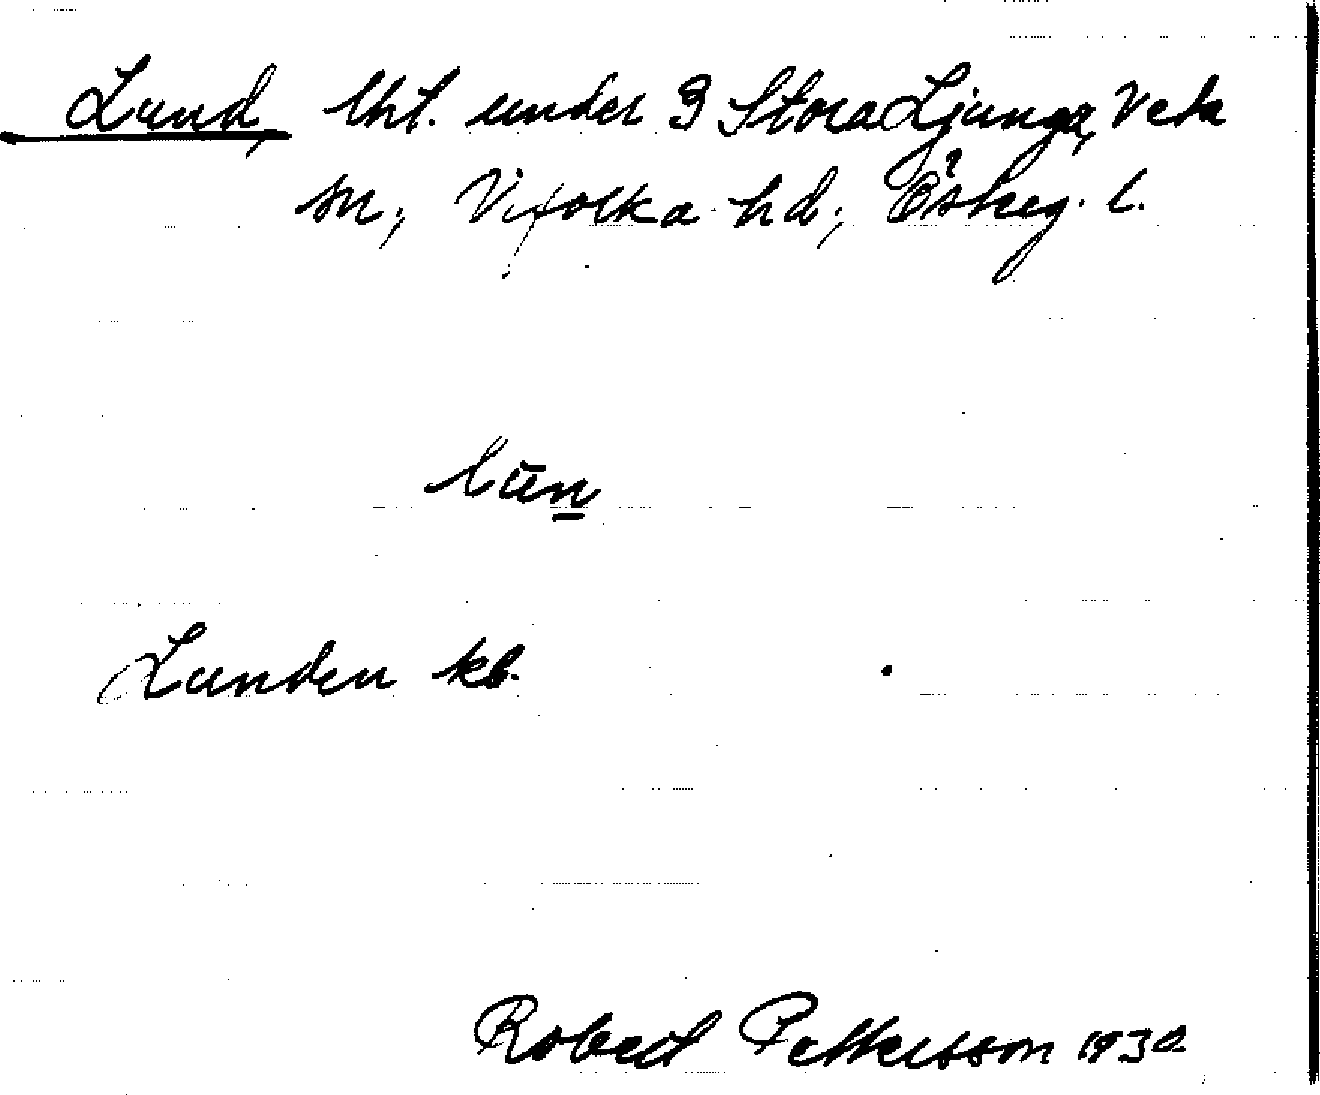 Lund, lht. under 3 Stora Ljunga, Veta
sn, Vifolka hd, Österg. l.
lūn
Lunden kb.
Robert Pettersson 1930